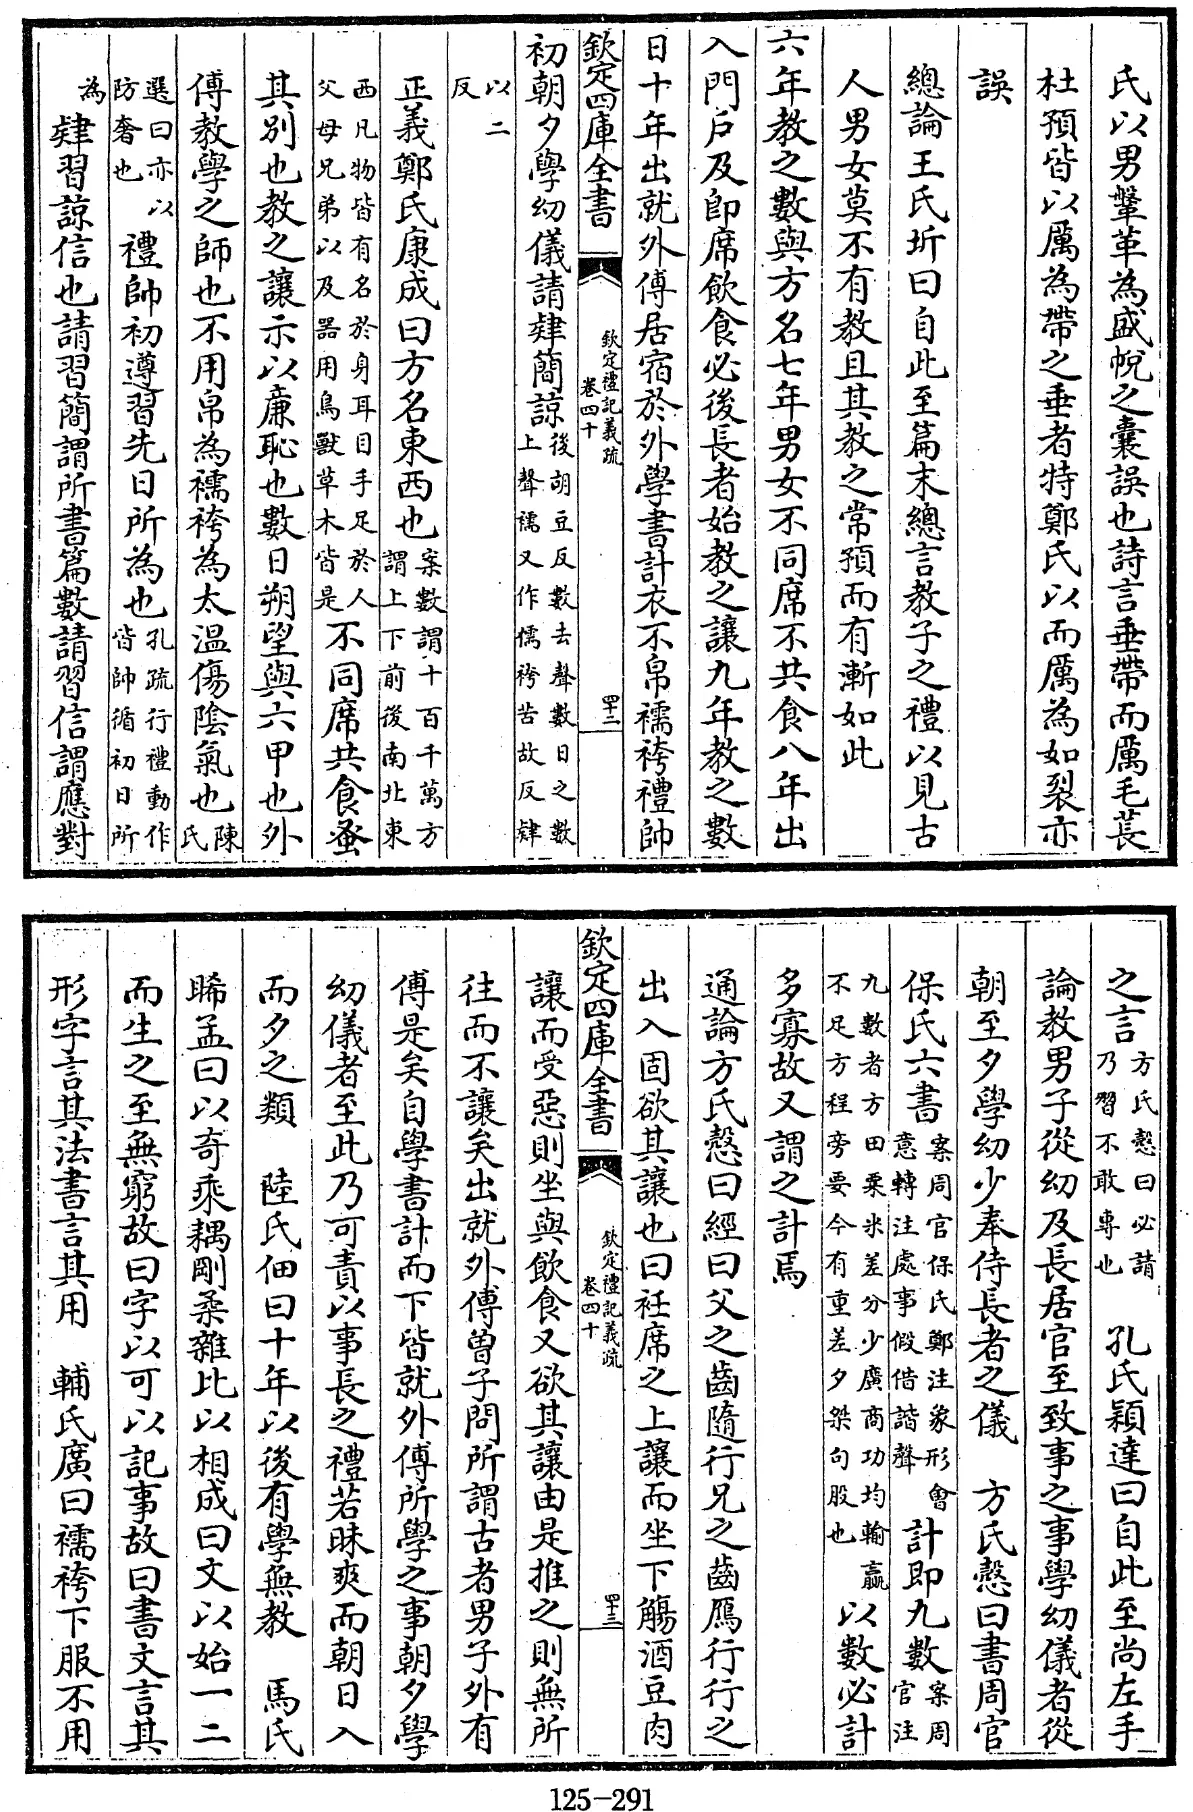 氏以男鞶革為盛帨之囊誤也詩言垂帶而厲毛萇
杜預皆以厲為帶之垂者特鄭氏以而厲為如裂亦
誤
總論王氏圻曰自此至篇末總言教子之禮以見古
人男女莫不有教且其教之常預而有漸如此
六年教之數與方名七年男女不同席不共食八年出
入門戶及即席飲食必後長者始教之讓九年教之數
日十年出就外傅居宿於外學書計衣不帛襦袴禮帥
欽定四庫全書 欽定禮記義疏 卷四十 四十二
初朝夕學幼儀請肄簡諒後胡豆反數去聲數日之數上聲襦又作懦袴苦故反肄
以二反
正義鄭氏康成曰方名東西也案數謂十百千萬方謂上下前後南北東
西凡物皆有名於身耳目手足於人父母兄弟以及器用鳥獸草木皆是不同席共食蚤
其別也教之讓示以廉恥也數日朔望與六甲也外
傅教學之師也不用帛為襦袴為太溫傷陰氣也陳氏
選曰亦以防奢也禮帥初遵習先日所為也孔疏行禮動作皆帥循初日所
為肄習諒信也請習簡謂所書篇數請習信謂應對
之言方氏慤曰必請乃習不敢專也 孔氏穎達曰自此至尚左手
論教男子從幼及長居官至致事之事學幼儀者從
朝至夕學幼少奉侍長者之儀 方氏慤曰書周官
保氏六書案周官保氏鄭注象形會意轉注處事假借諧聲計即九數案周官注
九數者方田粟米差分少廣商功均輸贏不足方程旁要今有重差夕桀句股也以數必計
多寡故又謂之計焉
通論方氏慤曰經曰父之齒隨行兄之齒鴈行行之
出入固欲其讓也曰衽席之上讓而坐下觴酒豆肉
欽定四庫全書 欽定禮記義疏 卷四十 四十三
讓而受惡則坐與飲食又欲其讓由是推之則無所
往而不讓矣出就外傅曾子問所謂古者男子外有
傅是矣自學書計而下皆就外傅所學之事朝夕學
幼儀者至此乃可責以事長之禮若昧爽而朝日入
而夕之類 陸氏佃曰十年以後有學無教 馬氏
晞孟曰以奇乘耦剛柔雜比以相成曰文以始一二
而生之至無窮故曰字以可以記事故曰書文言其
形字言其法書言其用 輔氏廣曰襦袴下服不用
125-291